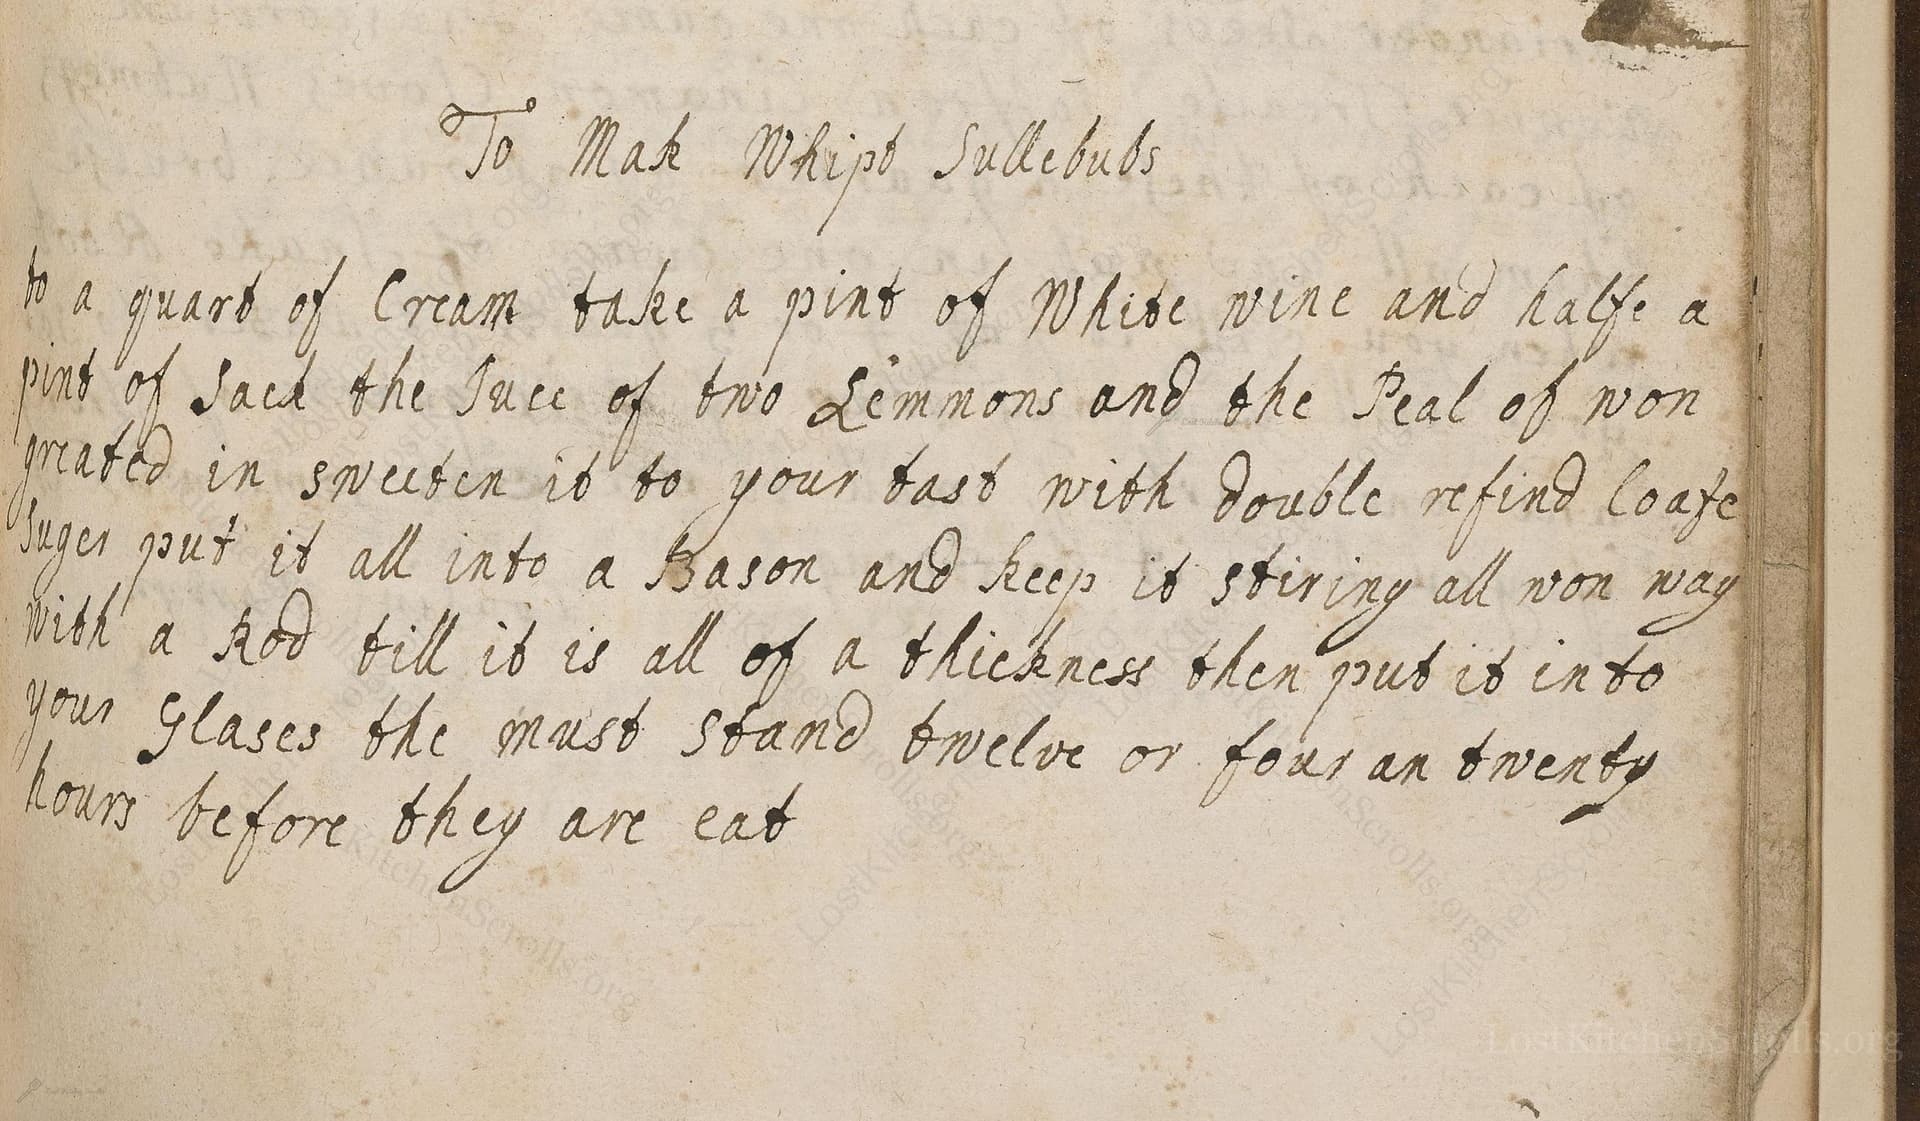 To Mak Whipt Sullebubs
to a quart of Cream take a pint of White wine and halfe a
pint of Sack the Juce of two Lemmons and the Peal of won
greated in sweeten it to your tast with double refind loafe
Suger put it all into a Bason and keep it stiring all won way
with a Rod till it is all of a thickness then put it into
your Glases the must stand twelve or four an twenty
hours before they are eat
LostKitchenScrolls.org